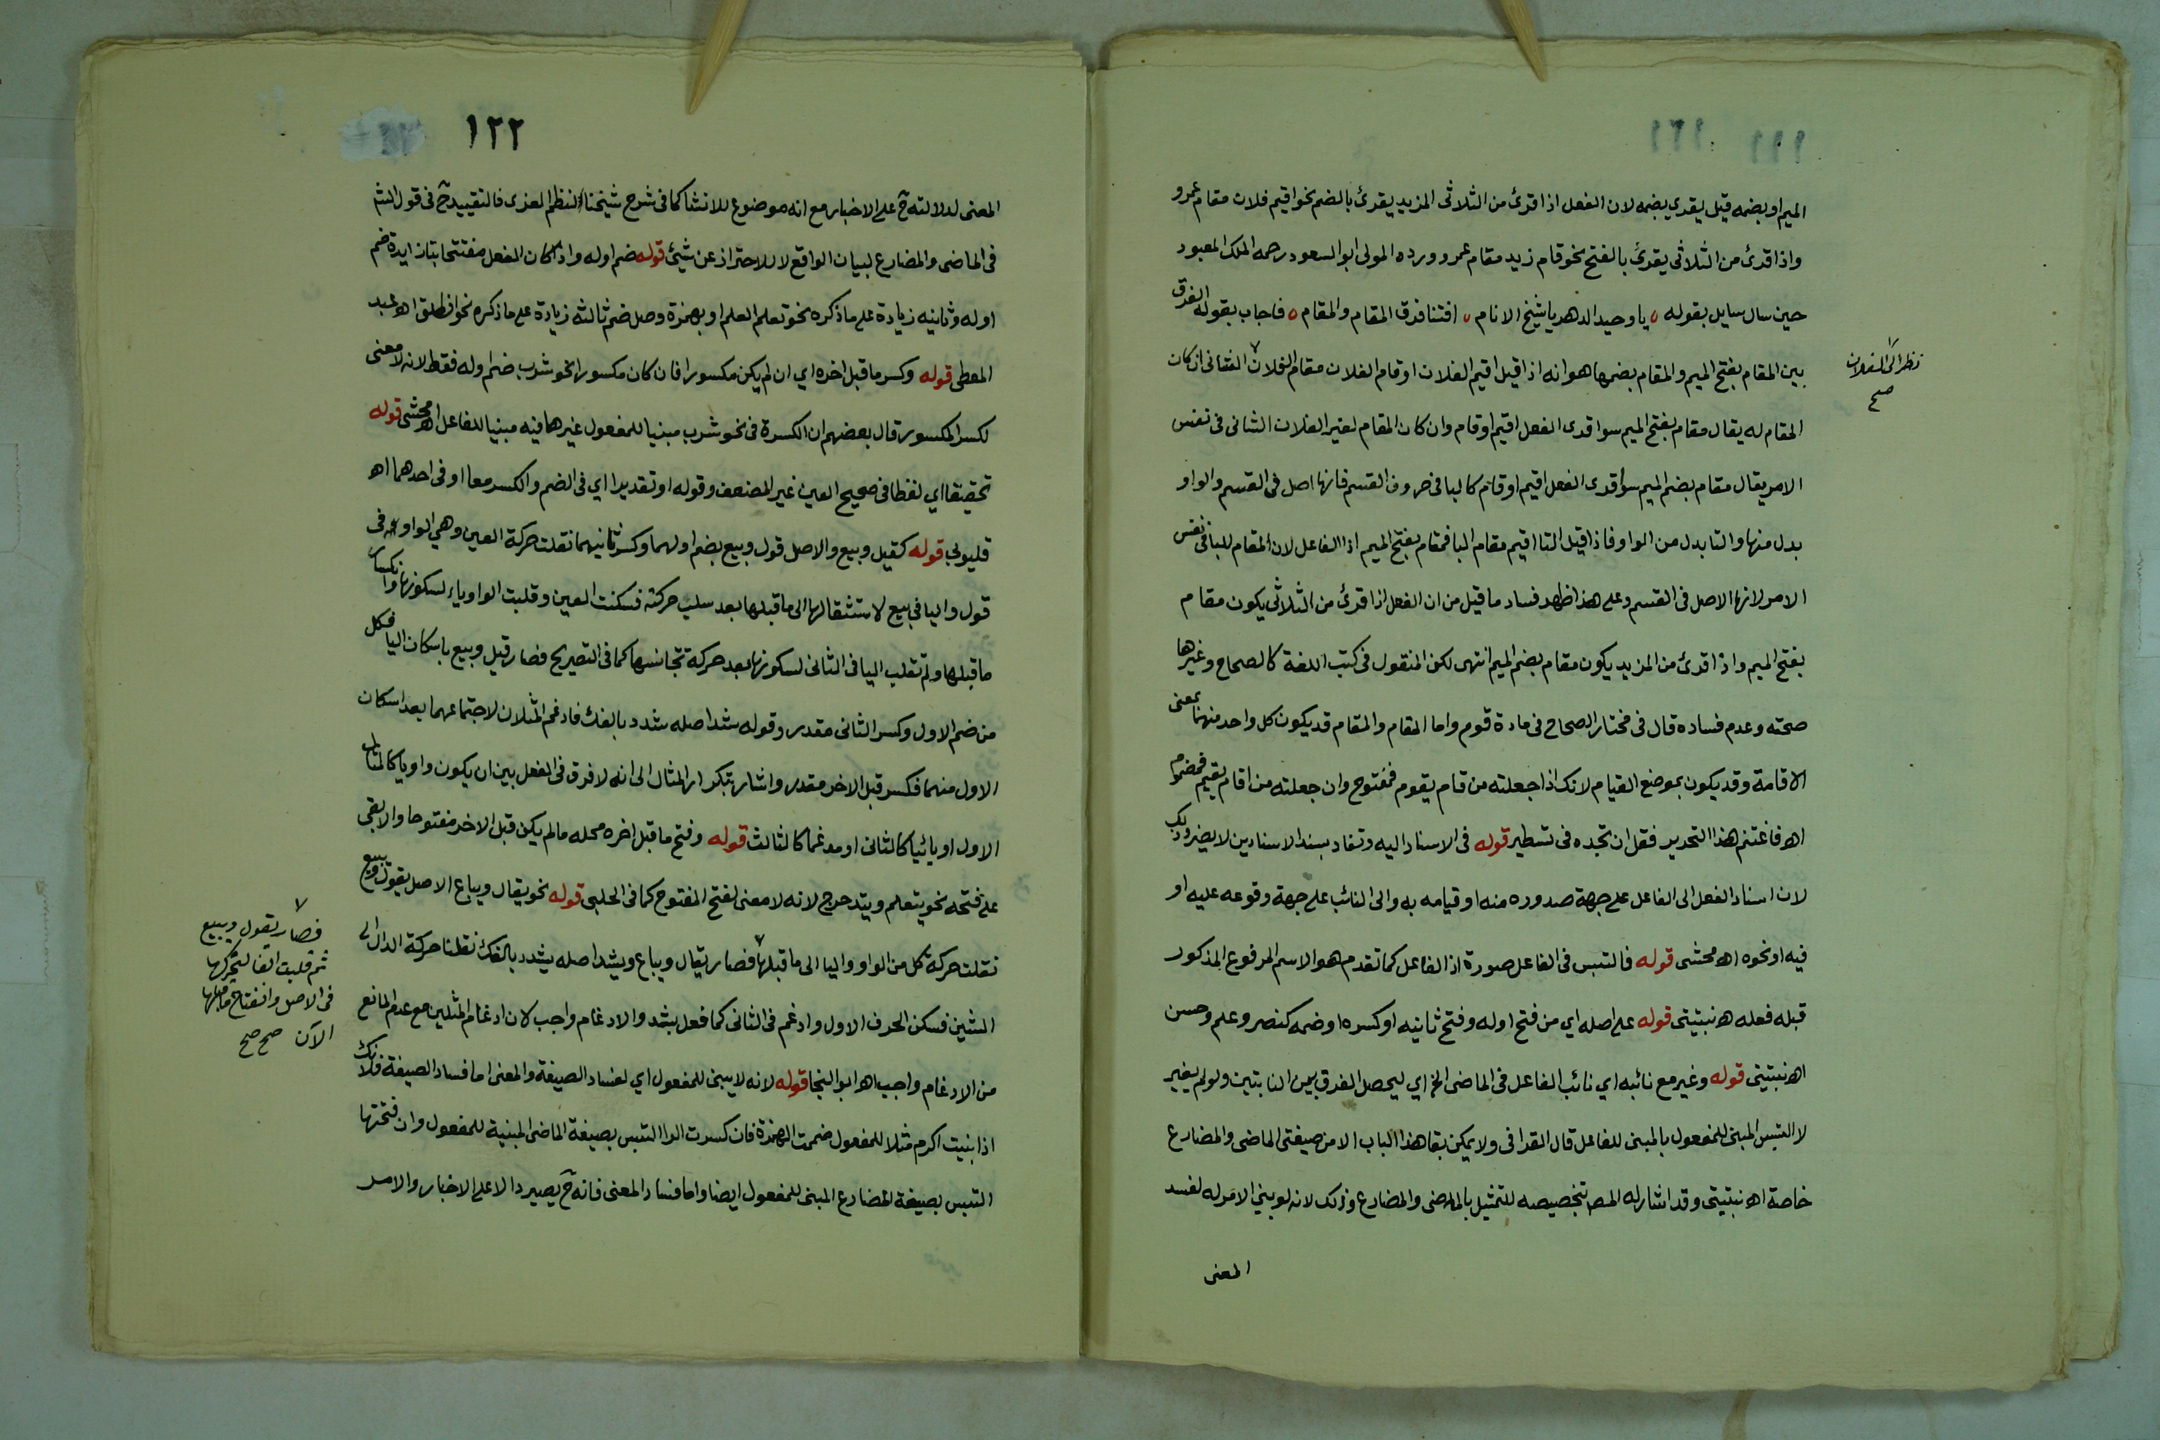 الميم او بضمه قيل يقدري بضمه لان الفعل اذا قرئ من الثلاثي المزيد يقرئ بالضم نحو اقيم فلان مقام عمرو
واذا قرئ من الثلاثي يقرئ بالفتح نحو قام زيد مقام عمرو ورده المولى ابو السعود رحمه الملك المعبود
حين سال سايل بقوله يا وحيد الدهر يا شيخ الانام افتنا فرق المقام والمقام فاجاب بقوله الفرق
بين المقام بفتح الميم والمقام بضمها هو انه اذا قيل اقيم الفلان او قام الفلان مقام الفلان الثاني ان كان
نظرا الى الفلان
صح
المقام له يقال مقام بفتح الميم سوا قرى الفعل اقيم او قام وان كان المقام لغير الفلان الثاني في نفس
الامر يقال مقام بضم الميم سوا قرى الفعل اقيم او قام كالبا في حروف القسم فانها اصل في القسم والواو
بدل منها والتا بدل من الواو فاذا قيل التا اقيم مقام البا فمقام بفتح الميم اذا الفاعل لان المقام للبا في نفس
الامر لانها الاصل في القسم وعلى هذا ظهر فساد ما قيل من ان الفعل اذا قرئ من الثلاثي يكون مقام
بفتح الميم واذا قرئ من المزيد يكون مقام بضم الميم انتهى لكن المنقول في كتب اللغة كالصحاح وغيرها
صحته وعدم فساده قال في مختار الصحاح في مادة قوم واما المقام والمقام قد يكون كل واحد منهما بمعنى
الاقامة وقد يكون بموضع القيام لانك اذا جعلته من قام يقوم فمفتوح وان جعلته من اقام يقيم فمضموم
اهـ فاغتنم هذا التحرير فقل ان تجده في تسطير قوله في الاسناد اليه وتضاد بسند الاسنادين لا يضر وذلك
لان اسناد الفعل الى الفاعل على جهة صدوره منه او قيامه به والى النائب على جهة وقوعه عليه او
فيه او نحوه اهـ محشى قوله فالتبس في الفاعل صورة اذ الفاعل كما تقدم هو الاسم المرفوع المذكور
قبله فعله اهـ نبتيتى قوله على اصله اي من فتح اوله وفتح ثانيه او كسره او ضمه كنصر وعلم وحسن
اهـ نبتيتى قوله وغير مع نائبه اي نائب الفاعل في الماضى الخ اي ليحصل الفرق بين النابتين ولو لم يغير
لا التبس المبنى للمفعول بالمبنى للفاعل قال القرافى ولا يمكن بقا هذا الباب الا من صيغتى الماضى والمضارع
خاصة اهـ نبتيتى وقد اشار له المص بتخصيصه للتمثيل بالماضى والمضارع وذلك لانه لو بني الامر له لفسد
المعنى
١٢٢
المعنى لدلالته ح على الاخبار مع انه موضوع للانشا كما في شرح شيخنا لنظم العزى فالتقييد ح في قول الشم
في الماضى والمضارع لبيان الواقع لا للاحتراز عن شيئ قوله ضم اوله واذا كان الفعل مفتتحا بتا زايدة ضم
اوله وثانيه زيادة على ما ذكره نحو تعلم العلم او بهمزة وصل ضم ثالثه زيادة على ما ذكره نحو انطلق اهـ عبد
المعطى قوله وكسر ما قبل اخره اي ان لم يكن مكسورا فان كان مكسورا نحو شرب ضم اوله فقط لانه لا معنى
لكسر المكسور قال بعضهم ان الكسرة في نحو شرب مبنيا للمفعول غيرها فيه مبنيا للفاعل اهـ محشى قوله
تحقيقا اي لفظا في صحيح العين غير المضعف وقوله او تقديرا اي في الضم والكسر معا او في احدهما اهـ
قليوبى قوله كقيل وبيع والاصل قول وبيع بضم اولهما وكسر ثانيهما نقلت حركة العين وهي الواو في
قول واليا في بيع لاستثقالها الى ما قبلها بعد سلب حركته فسكنت العين وقلبت الواو ياء لسكونها وانكسار
ما قبلها ولم تقلب اليا في الثانى لسكونها بعد حركة تجانسها كما في التصريح فصار قيل وبيع باسكان اليا فكل
من ضم الاول وكسر الثانى مقدر وقوله شد اصله شدد بالفك فادغم المثلان لاجتماعهما بعد اسكان
الاول منهما فكسر قبل الاخر مقدر واشار بتكرار المثال الى انه لا فرق في الفعل بين ان يكون واويا كالمثال
الاول او يائيا كالثانى او مدغما كالثالث قوله وفتح ما قبل اخره محله ما لم يكن قبل الاخر مفتوحا والا بقى
على فتحه نحو يتعلم ويتدحرج لانه لا معنى لفتح المفتوح كما في الحلبى قوله نحو يقال ويباع الاصل يقول ويبيع
نقلت حركة كل من الواو واليا الى ما قبلها فصار يقال ويباع ويشد اصله يشدد بالفك نقلنا حركة الدال الى
فصار يقول ويبيع
ثم قلبت الفا لتحركها
في الاصل وانفتاح ما قبلها
الآن صح صح
الشين فسكن الحرف الاول وادغم في الثانى كما فعل بشد والادغام واجب لان ادغام المثلين مع عدم المانع
من الادغام واجب اهـ ابو النجا قوله لانه لا يبنى للمفعول اي لفساد الصيغة والمعنى اما فساد الصيغة فلانك
اذا بنيت اكرم مثلا للمفعول ضممت الهمزة فان كسرت الرا التبس بصيغة الماضى المبنية للمفعول وان فتحتها
التبس بصيغة المضارع المبنى للمفعول ايضا واما فساد المعنى فانه ح يصير دالا على الاخبار والامر